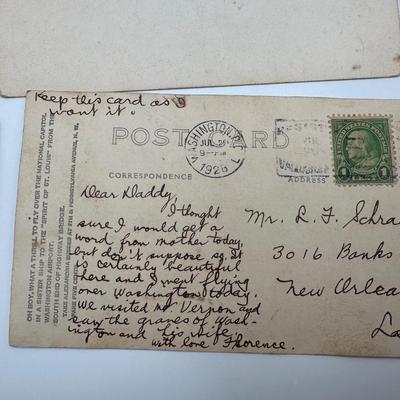 Keep this card as I
want it.
POST CARD
CORRESPONDENCE
ADDRESS
WASHINGTON, D.C.
JUL 29
9 - PM
1928
1
Dear Daddy,
I thought
sure I would get a
word from mother today,
but don't suppose so. It
is certainly beautiful
here and I went flying
over Washington today.
We visited Mt. Vernon and
saw the graves of Wash-
ington and his wife.
with love Florence.
Mr. L. F. Schra
3016 Banks
New Orlea
La
OH BOY, WHAT A THRILL TO FLY OVER THE NATIONAL CAPITOL
IN A SISTER SHIP TO THE "SPIRIT OF ST. LOUIS" FROM THE
WASHINGTON AIRPORT.
SOUTH END OF HIGHWAY BRIDGE.
TAKE ALEXANDRIA BUSSES AT 9TH & PENNSYLVANIA AVENUE, N.W.